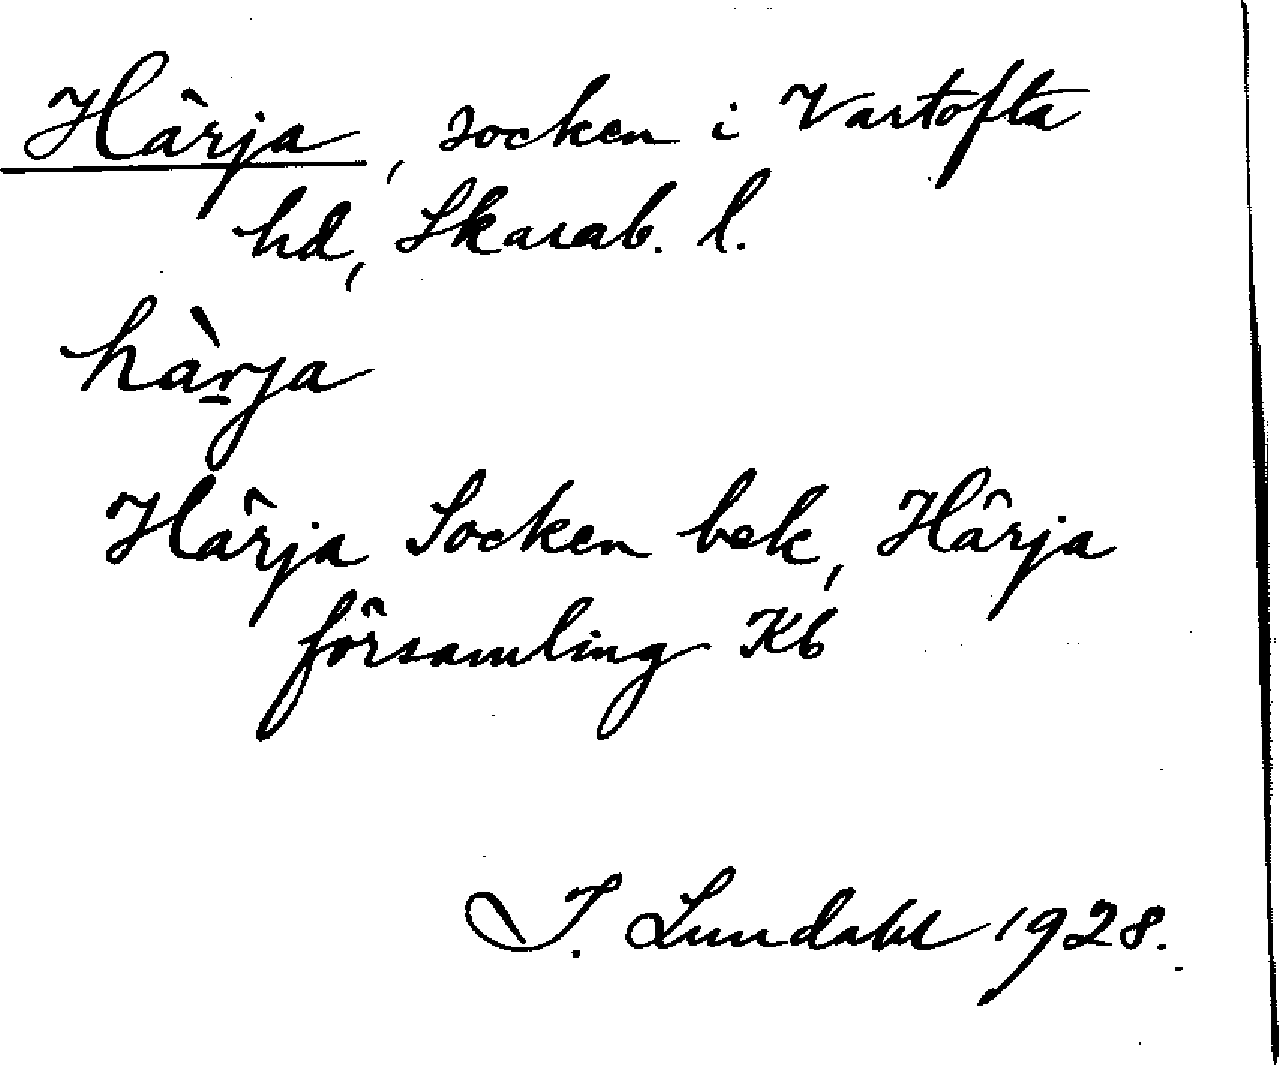 Härja, socken i Vartofta
hd, Skarab. l.
hàr̲ja
Härja Socken bek, Härja
församling Kb
I. Lundahl 1928.